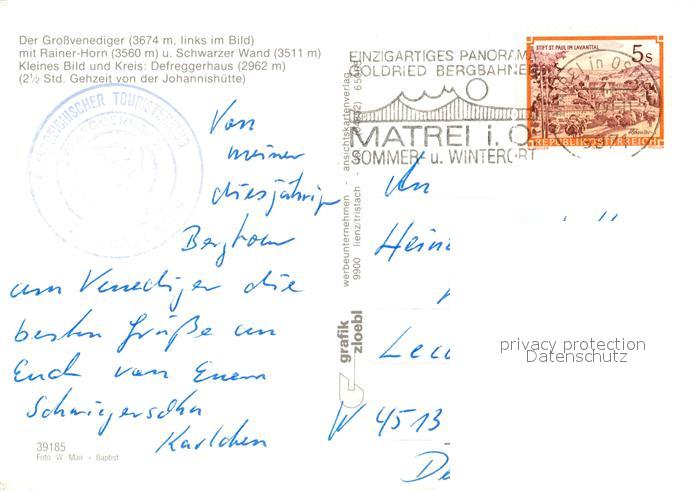 Der Großvenediger (3674 m, links im Bild)
mit Rainer-Horn (3560 m) u. Schwarzer Wand (3511 m)
Kleines Bild und Kreis: Defreggerhaus (2962 m)
(2½ Std. Gehzeit von der Johannishütte)
ÖSTERREICHISCHER TOURISTENKLUB
Von
meiner
diesjährigen
Bergtour
am Venediger die
besten Grüße an
Euch von Euerm
Schwiegersohn
Karlchen
39185
Foto: W. Mair + Baptist
werbeunternehmen - ansichtskartenverlag
9900 lienz/tristach
grafik
zloebl
EINZIGARTIGES PANORAMA
GOLDRIED BERGBAHNEN
MATREI i. O
SOMMER u. WINTERORT
STIFT ST. PAUL IM LAVANTTAL
5s
REPUBLIK ÖSTERREICH
An
Hein
W 4513
privacy protection
Datenschutz